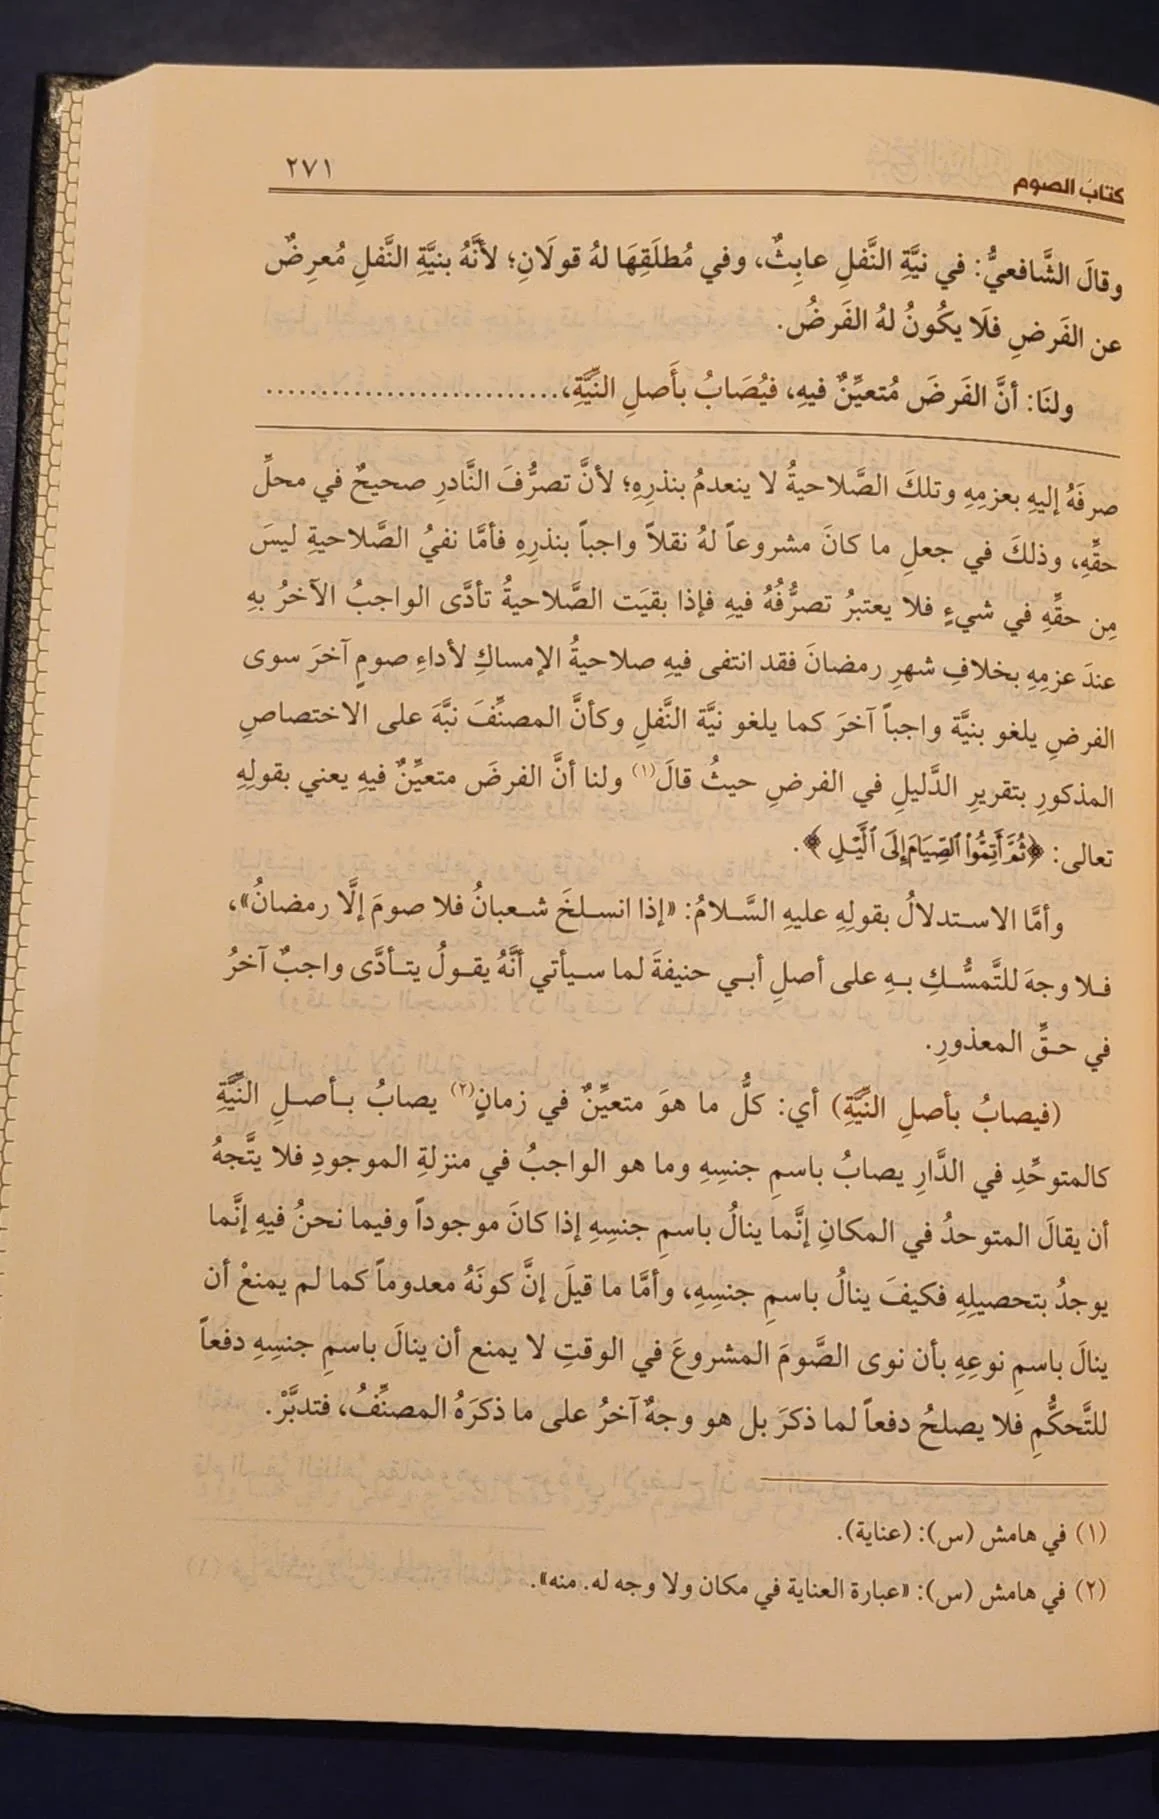 كتاب الصوم ٢٧١
وقالَ الشَّافعيُّ: في نيَّةِ النَّفلِ عابِثٌ، وفي مُطلَقِهَا لهُ قولَانِ؛ لأنَّهُ بنيَّةِ النَّفلِ مُعرِضٌ
عن الفَرضِ فلَا يكُونُ لهُ الفَرضُ.
ولنَا: أنَّ الفَرضَ مُتعيِّنٌ فيهِ، فيُصَابُ بأَصلِ النِّيَّةِ،............................
صرفَهُ إليهِ بعزمِهِ وتلكَ الصَّلاحيةُ لا ينعدمُ بنذرِهِ؛ لأنَّ تصرُّفَ النَّادرِ صحيحٌ في محلِّ
حقِّهِ، وذلكَ في جعلِ ما كانَ مشروعاً لهُ نقلاً واجباً بنذرِهِ فأمَّا نفيُ الصَّلاحيةِ ليسَ
مِن حقِّهِ في شيءٍ فلا يعتبرُ تصرُّفُهُ فيهِ فإذا بقيَت الصَّلاحيةُ تأدَّى الواجبُ الآخرُ بهِ
عندَ عزمِهِ بخلافِ شهرِ رمضانَ فقد انتفى فيهِ صلاحيةُ الإمساكِ لأداءِ صومٍ آخرَ سوى
الفرضِ يلغو بنيَّة واجباً آخرَ كما يلغو نيَّة النَّفلِ وكأنَّ المصنِّفَ نبَّهَ على الاختصاصِ
المذكورِ بتقريرِ الدَّليلِ في الفرضِ حيثُ قالَ(١) ولنا أنَّ الفرضَ متعيِّنٌ فيهِ يعني بقولِهِ
تعالى: ﴿ثُمَّ أَتِمُّوا۟ ٱلصِّيَامَ إِلَى ٱلَّيْلِ﴾.
وأمَّا الاستدلالُ بقولِهِ عليهِ السَّلامُ: «إذا انسلخَ شعبانُ فلا صومَ إلَّا رمضانُ»،
فلا وجهَ للتَّمسُّكِ بهِ على أصلِ أبي حنيفةَ لما سيأتي أنَّهُ يقولُ يتأدَّى واجبٌ آخرُ
في حقِّ المعذورِ.
(فيصابُ بأصلِ النِّيَّةِ) أي: كلُّ ما هوَ متعيِّنٌ في زمانٍ(٢) يصابُ بأصلِ النِّيَّةِ
كالمتوحِّدِ في الدَّارِ يصابُ باسمِ جنسِهِ وما هو الواجبُ في منزلةِ الموجودِ فلا يتَّجهُ
أن يقالَ المتوحدُ في المكانِ إنَّما ينالُ باسمِ جنسِهِ إذا كانَ موجوداً وفيما نحنُ فيهِ إنَّما
يوجدُ بتحصيلِهِ فكيفَ ينالُ باسمِ جنسِهِ، وأمَّا ما قيلَ إنَّ كونَهُ معدوماً كما لم يمنعْ أن
ينالَ باسمِ نوعِهِ بأن نوى الصَّومَ المشروعَ في الوقتِ لا يمنع أن ينالَ باسمِ جنسِهِ دفعاً
للتَّحكُّمِ فلا يصلحُ دفعاً لما ذكرَ بل هو وجهٌ آخرُ على ما ذكرَهُ المصنِّفُ، فتدبَّرْ.
(١) في هامش (س): (عناية).
(٢) في هامش (س): «عبارة العناية في مكان ولا وجه له. منه».